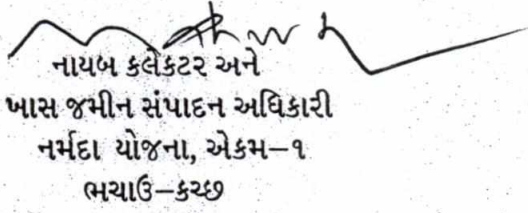 નાયબ કલેકટર અને
ખાસ જમીન સંપાદન અધિકારી
નર્મદા યોજના, એકમ–૧
ભચાઉ–કચ્છ